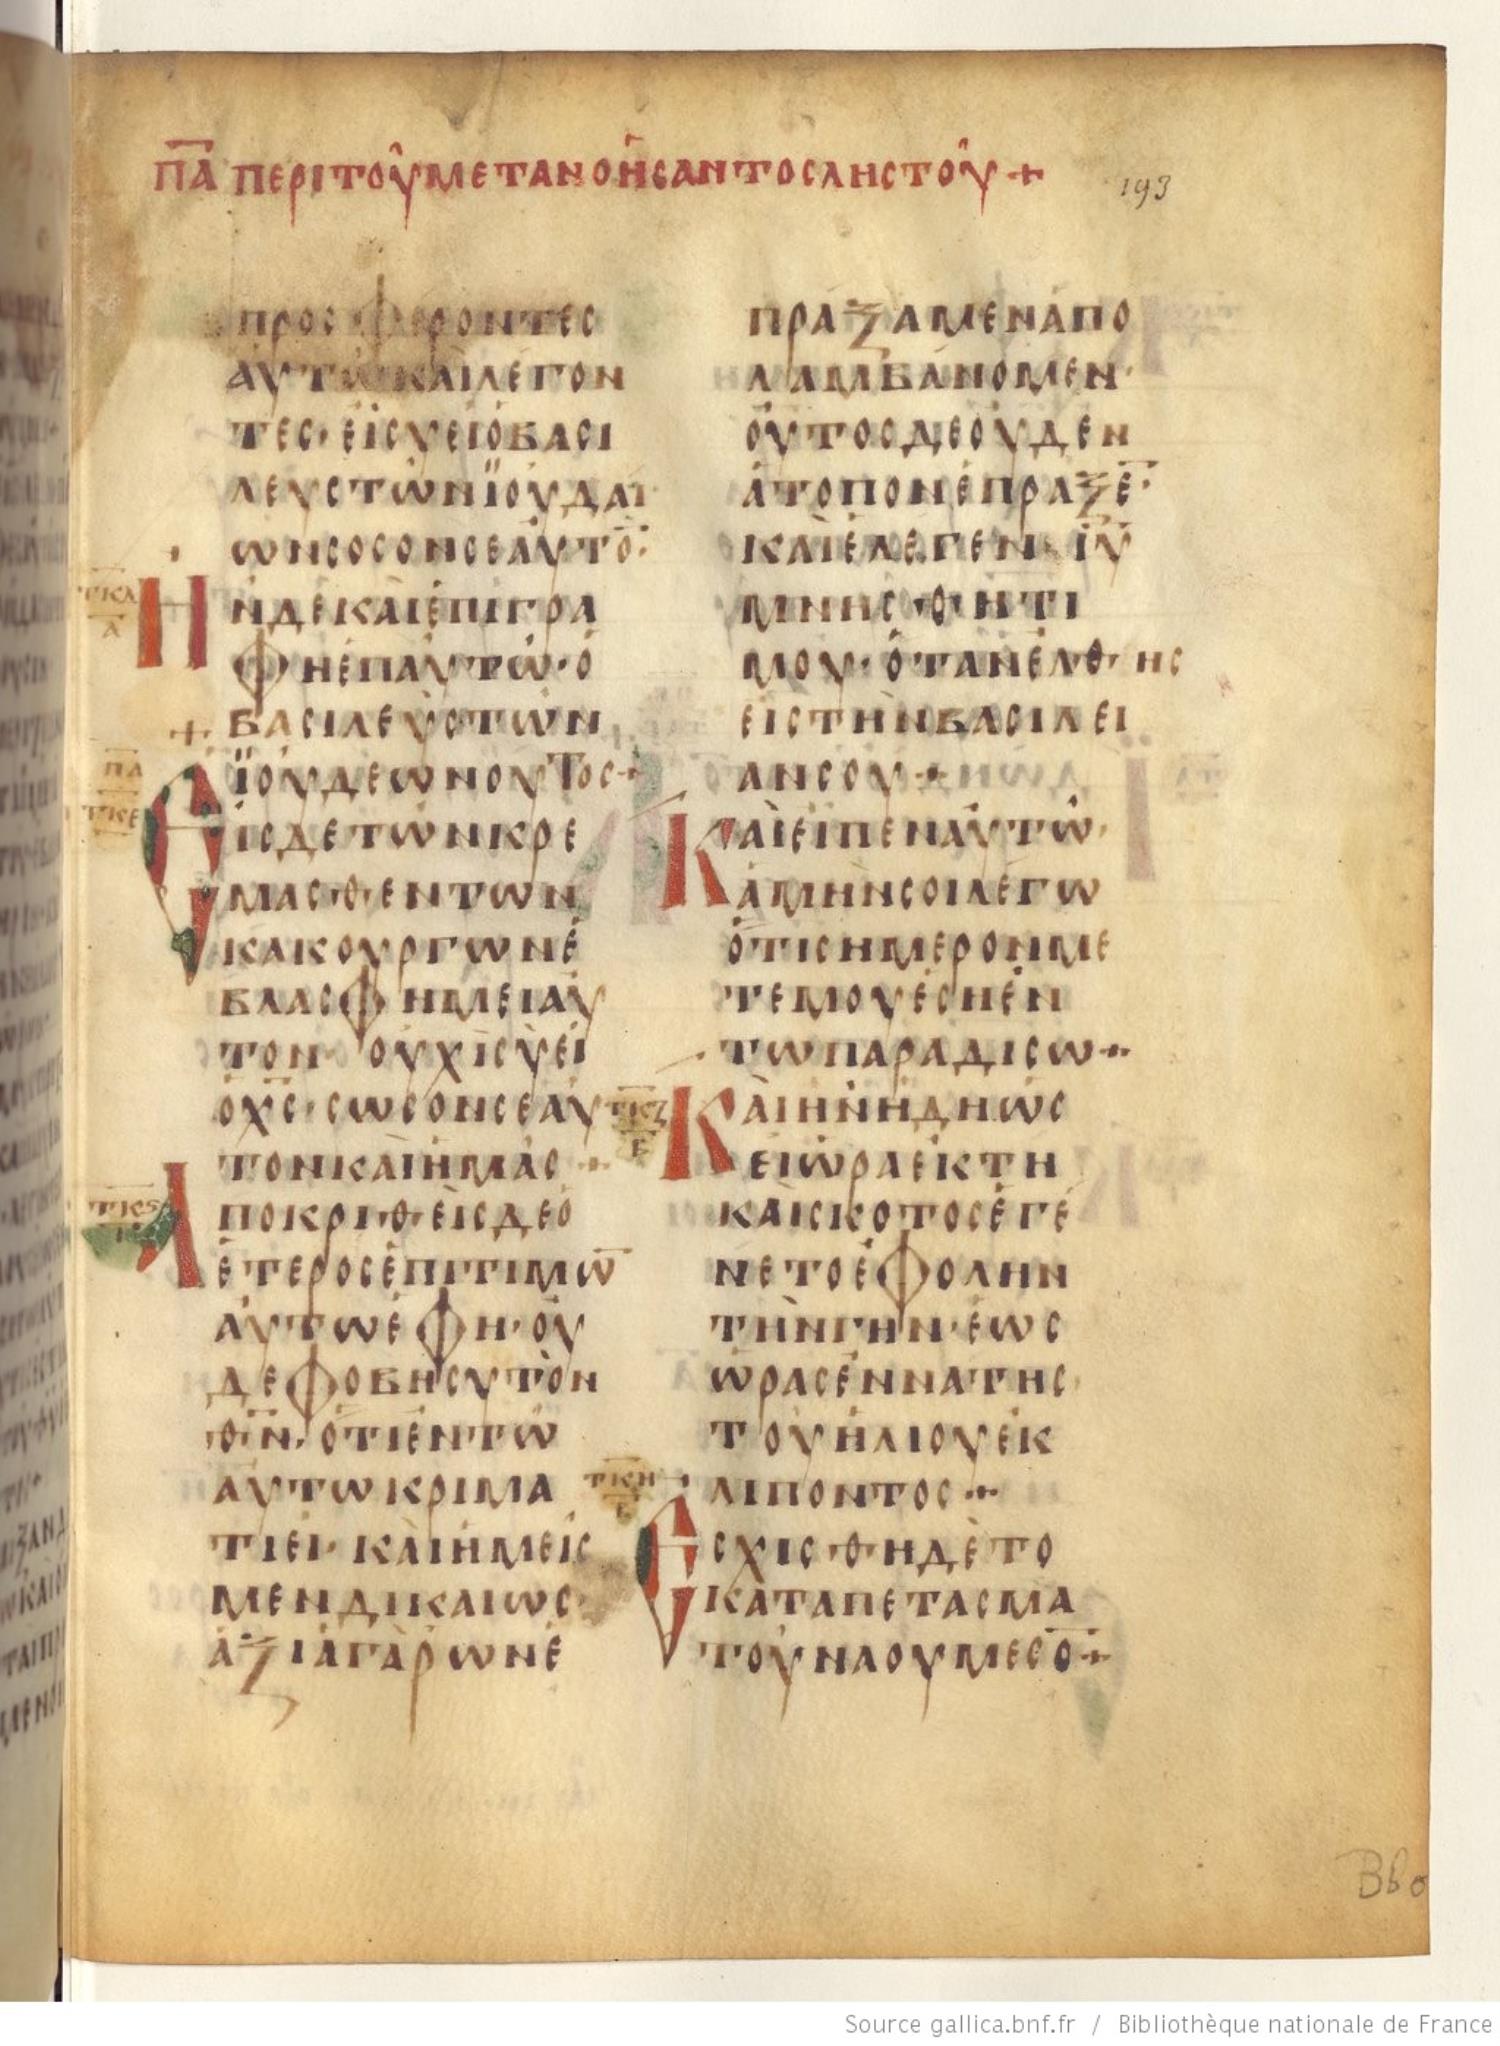 ΠΑ ΠΕΡΙΤΟΥΜΕΤΑΝΟΗCΑΝΤΟCΛΗCΤΟΥ +
193
ΠΡΟCΦΕΡΟΝΤΕC
ΑΥΤΩΚΑΙΛΕΓΟΝ
ΤΕC·ΕΙCΥΕΙΟΒΑCΙ
ΛΕΥCΤΩΝΪΟΥΔΑΙ
ΩΝCΟCΟΝCΕΑΥΤΟ̅·
ΤΚΔ
Α
Η
ΝΔΕΚΑΙΕΠΙΓΡΑ
ΦΗΕΠΑΥΤΩ·Ο
ΒΑCΙΛΕΥCΤΩΝ
ΪΟΥΔΕΩΝΟΥΤΟC+
ΠΑ
ΤΚΕ
Ε
ΙCΔΕΤΩΝΚΡΕ
ΜΑCΘΕΝΤΩΝ
ΚΑΚΟΥΡΓΩΝΕ
ΒΛΑCΦΗΜΕΙΑΥ
ΤΟΝ· ΟΥΧΙCΥΕΙ
ΟΧ̅C̅·CΩCΟΝCΕΑΥ
ΤΟΝΚΑΙΗΜΑC
ΤΚϚ
Ι
Α
ΠΟΚΡΙΘΕΙCΔΕΟ
ΕΤΕΡΟCΕΠΙΤΙΜΩ̅
ΑΥΤΩΕΦΗ·ΟΥ
ΔΕΦΟΒΗCΥΤΟΝ
Θ̅Ν̅·ΟΤΙΕΝΤΩ
ΑΥΤΩΚΡΙΜΑ
ΤΙΕΙ·ΚΑΙΗΜΕΙC
ΜΕΝΔΙΚΑΙΩC·
ΑΞΙΑΓΑΡΩΝΕ
ΠΡΑΞΑΜΕΝΑΠΟ
ΛΑΜΒΑΝΟΜΕΝ·
ΟΥΤΟCΔΕΟΥΔΕΝ
ΑΤΟΠΟΝΕΠΡΑΞΕ̅·
ΚΑΙΕΛΕΓΕΝ Ι̅Υ̅
ΜΝΗCΘΗΤΙ
ΜΟΥ·ΟΤΑΝΕΛΘΗC
ΕΙCΤΗΝΒΑCΙΛΕΙ
ΑΝCΟΥ+
ΚΑΙΕΙΠΕΝΑΥΤΩ·
ΑΜΗΝCΟΙΛΕΓΩ
ΟΤΙCΗΜΕΡΟΝΜΕ
ΤΕΜΟΥΕCΗΕΝ
ΤΩΠΑΡΑΔΙCΩ··
ΤΚΖ
Β
ΚΑΙΗΝΗΔΗΩC
ΕΙΩΡΑΕΚΤΗ
ΚΑΙCΚΟΤΟCΕΓΕ
ΝΕΤΟΕΦΟΛΗΝ
ΤΗΝΓΗΝ·ΕΩC
ΩΡΑCΕΝΝΑΤΗC
ΤΟΥΗΛΙΟΥΕΚ
ΛΙΠΟΝΤΟC··
ΤΚΗ
Β
Ε
CΧΙCΘΗΔΕΤΟ
ΚΑΤΑΠΕΤΑCΜΑ
ΤΟΥΝΑΟΥΜΕCΟ̅+
Source gallica.bnf.fr / Bibliothèque nationale de France